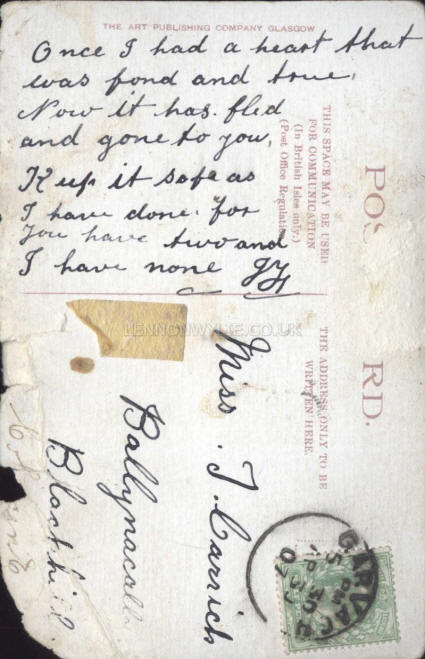 THE ART PUBLISHING COMPANY GLASGOW
Once I had a heart that
was fond and true,
Now it has fled
and gone to you,
Keep it safe as
I have done. for
You have two and
I have none
THIS SPACE MAY BE USED
FOR COMMUNICATION
(In British Isles only.)
(Post Office Regulation
POS RD.
THE ADDRESS ONLY TO BE
WRITTEN HERE.
LENNONWYLIE.CO.UK
Miss. J. Carrich
GARVAGH